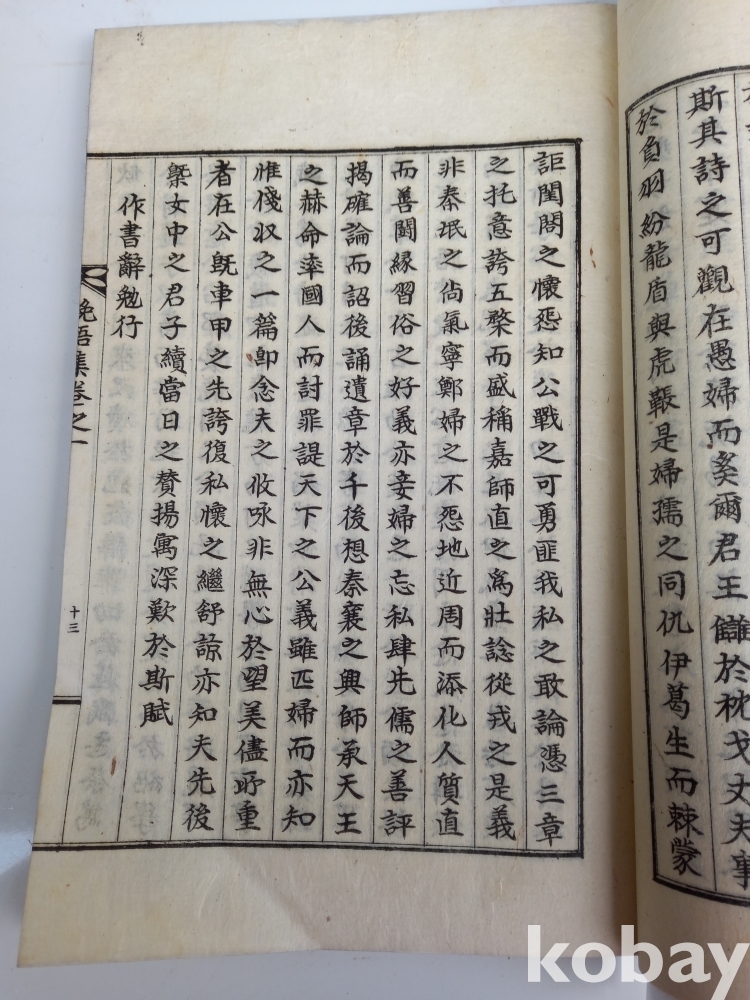 斯其詩之可觀在愚婦而奚爾君王讎於枕戈丈夫事
於負羽紛龍盾與虎韔是婦孺之同仇伊葛生而棘蒙
詎閨閤之懷怨知公戰之可勇匪我私之敢論憑三章
之托意誇五楘而盛稱嘉師直之爲壯諗從戎之是義
非秦氓之尙氣寧鄭婦之不怨地近周而添化人質直
而善鬪緣習俗之好義亦妾婦之忘私肆先儒之善評
揭確論而詔後誦遺章於千後想秦襄之興師承天王
之赫命率國人而討罪諟天下之公義雖匹婦而亦知
惟俴收之一篇卽念夫之攸咏非無心於望美儘所重
者在公旣車甲之先誇復私懷之繼舒諒亦知夫先後
槩女中之君子續當日之贊揚寓深歎於斯賦
作書辭勉行
晩梧集卷之一
十三
kobay